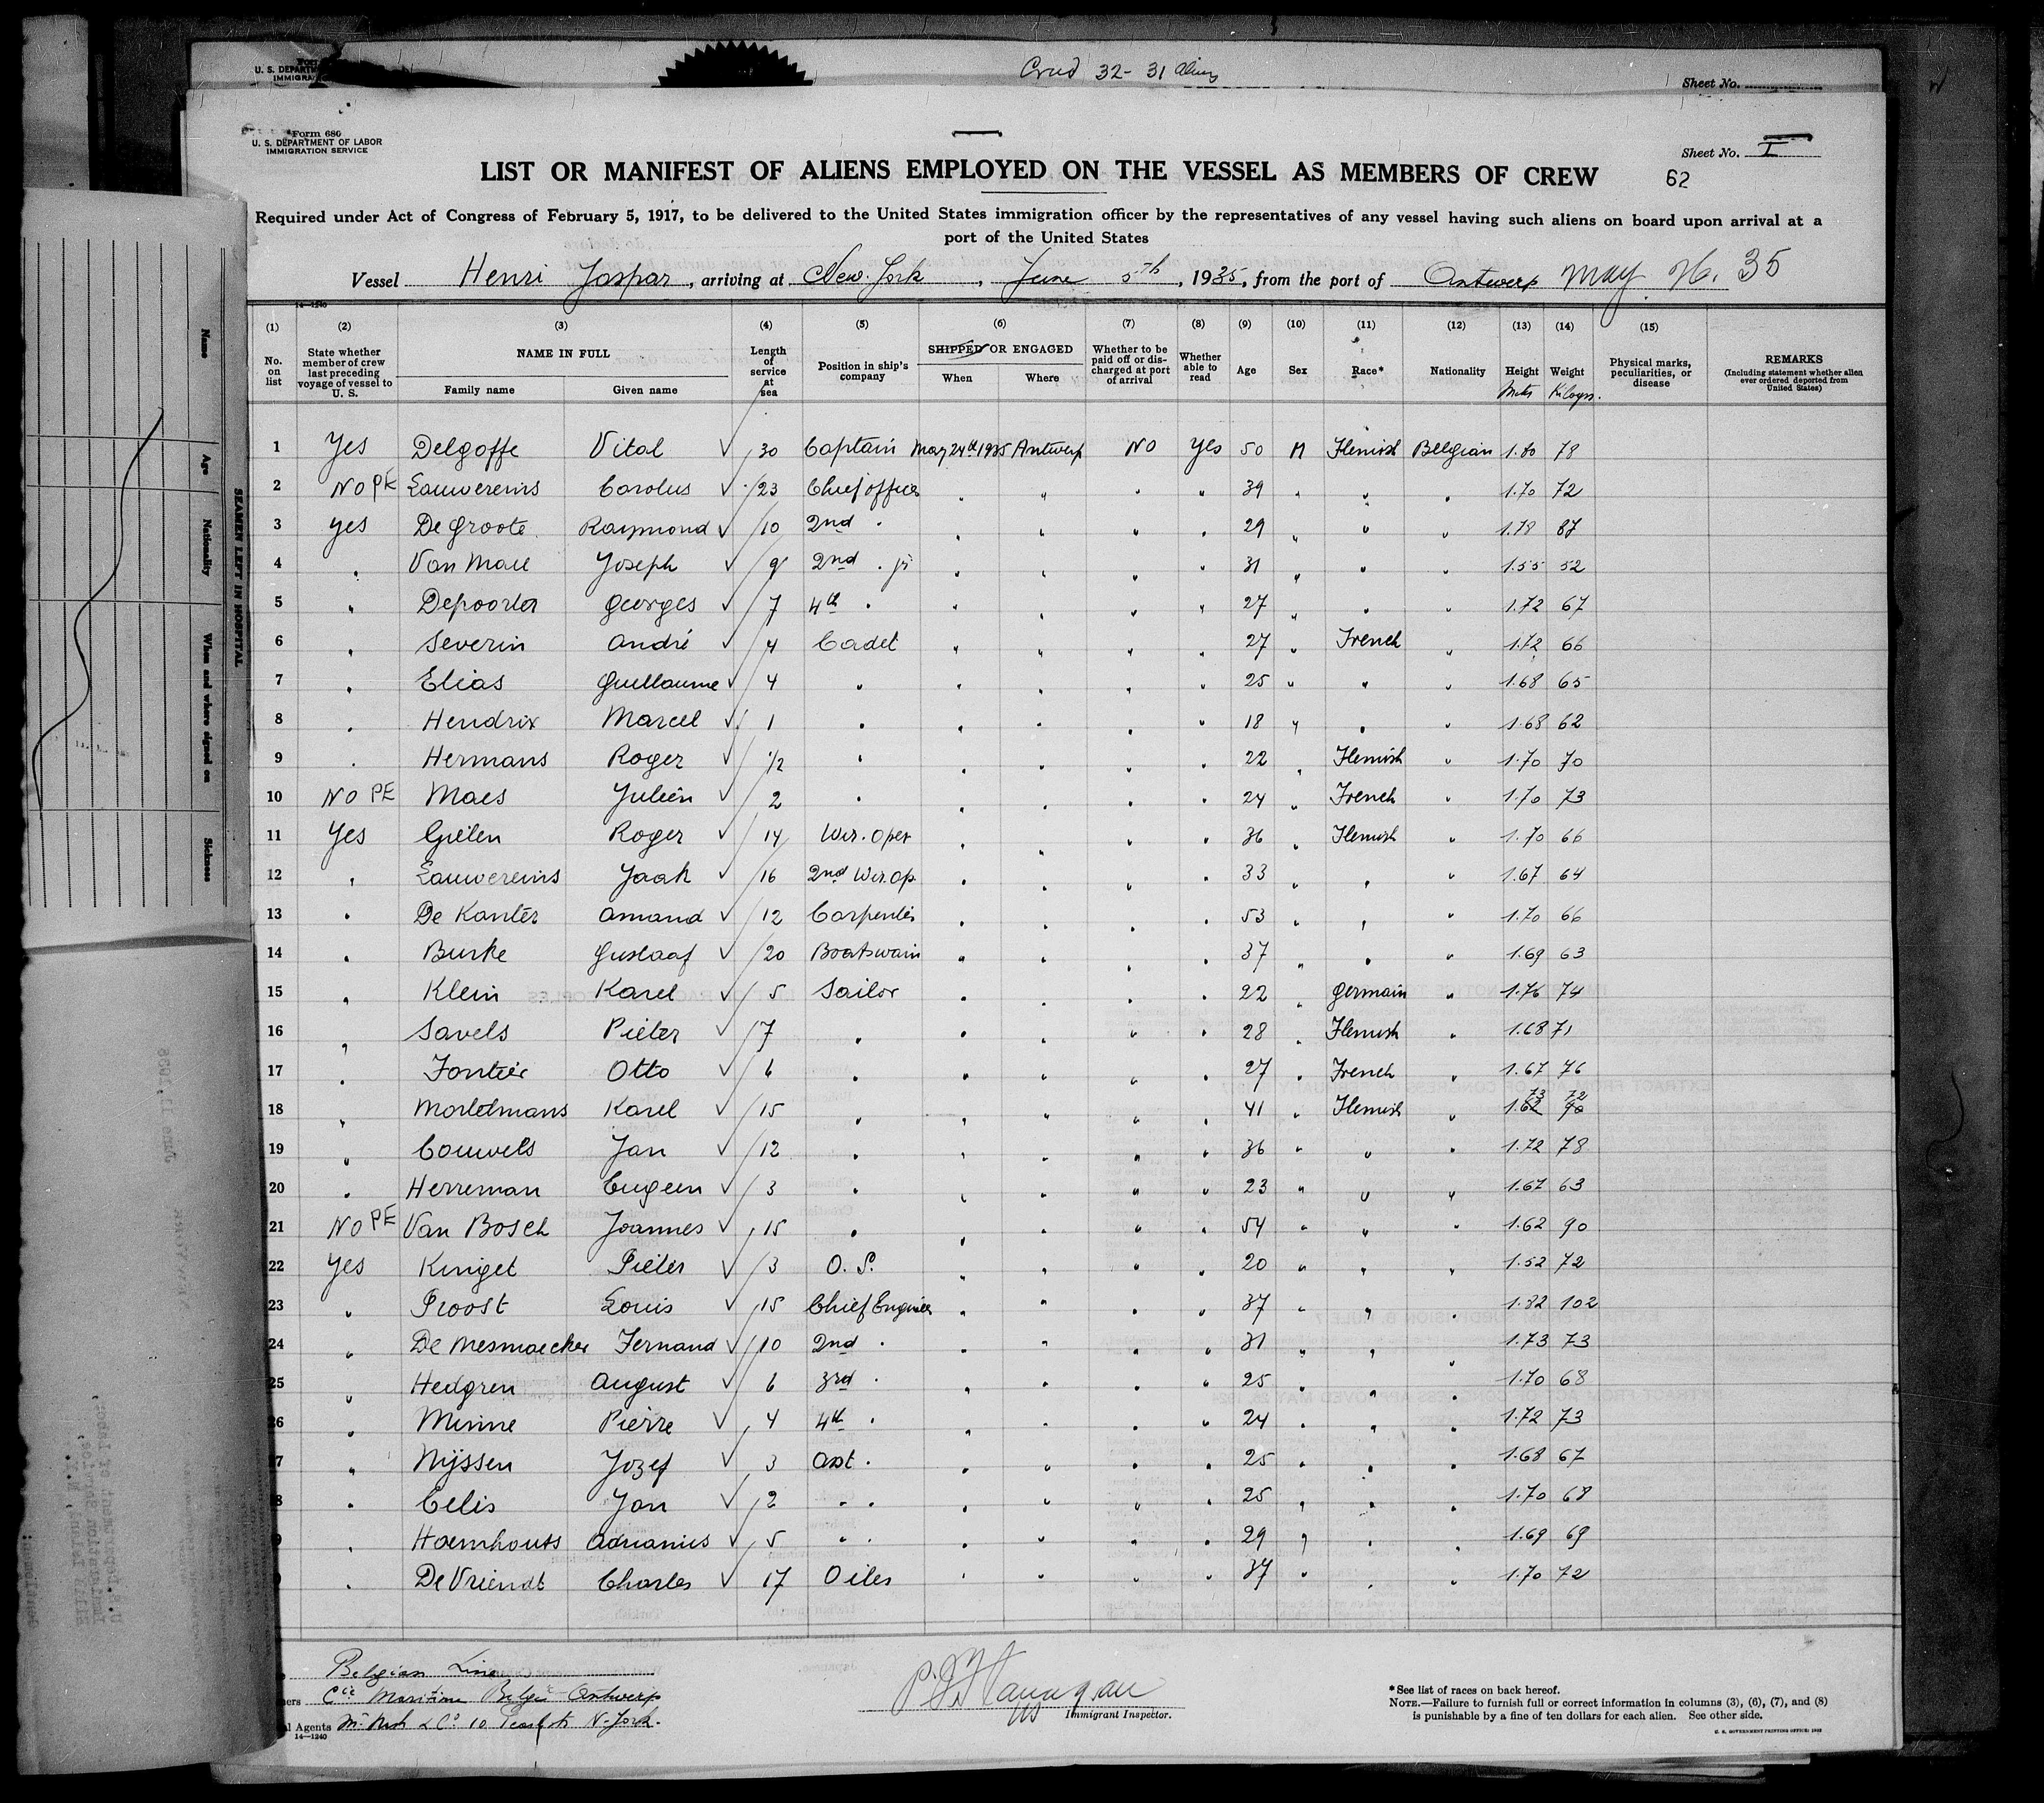 Crud 32- 31 aliens
U. S. DEPARTM
IMMIGRA
Sheet No.
Form 680
U. S. DEPARTMENT OF LABOR
IMMIGRATION SERVICE
Sheet No. I
LIST OR MANIFEST OF ALIENS EMPLOYED ON THE VESSEL AS MEMBERS OF CREW
62
Required under Act of Congress of February 5, 1917, to be delivered to the United States immigration officer by the representatives of any vessel having such aliens on board upon arrival at a
port of the United States
Vessel Henri Jaspar, arriving at New. York, June 5th, 1935, from the port of Antwerp May 26. 35
14—1240
(1) (2) (3) (4) (5) (6) (7) (8) (9) (10) (11) (12) (13) (14) (15)
No. on list State whether member of crew last preceding voyage of vessel to U. S. NAME IN FULL Family name Given name Length of service at sea Position in ship's company SHIPPED OR ENGAGED When Where Whether to be paid off or discharged at port of arrival Whether able to read Age Sex Race* Nationality Height Mets Weight Kilogrs. Physical marks, peculiarities, or disease REMARKS (Including statement whether alien ever ordered deported from United States)
1 Yes Delgoffe Vital ✓ 30 Captain May 24th 1935 Antwerp NO Yes 50 M Flemish Belgian 1.80 78
2 NO PE Lauwereins Carolus ✓ 23 Chief officer " " " " 39 " " " 1.70 72
3 Yes De Groote Raymond ✓ 10 2nd " " " " " 29 " " " 1.78 87
4 " Van Mall Joseph ✓ 9 2nd " jr " " " " 31 " " " 1.55 52
5 " Depoorter Georges ✓ 7 4th " " " " " 27 " " " 1.72 67
6 " Severin André ✓ 4 Cadet " " " " 27 " French " 1.72 66
7 " Elias Guillaume ✓ 4 " " " " " 25 " " " 1.68 65
8 " Hendrix Marcel ✓ 1 " " " " " 18 " " " 1.68 62
9 " Hermans Roger ✓ 1/2 " " " " " 22 " Flemish " 1.70 70
10 NO PE Maes Julien ✓ 2 " " " " " 24 " French " 1.70 73
11 Yes Gielen Roger ✓ 14 Wir. Oper " " " " 36 " Flemish " 1.70 66
12 " Lauwereins Jaak ✓ 16 2nd Wir. Op. " " " " 33 " " " 1.67 64
13 " De Kanter Amand ✓ 12 Carpenter " " " " 53 " " " 1.70 66
14 " Burke Gustaaf ✓ 20 Boatswain " " " " 37 " " " 1.69 63
15 " Klein Karel ✓ 5 Sailor " " " " 22 " Germain " 1.76 74
16 " Savels Pieter ✓ 7 " " " " " 28 " Flemish " 1.68 71
17 " Fontier Otto ✓ 6 " " " " " 27 " French " 1.67 76
18 " Mortelmans Karel ✓ 15 " " " " " 41 " Flemish " 1.62 73 90 72
19 " Couwels Jan ✓ 12 " " " " " 36 " " " 1.72 78
20 " Herreman Eugeen ✓ 3 " " " " " 23 " " " 1.67 63
21 NO PE Van Bosch Joannes ✓ 15 " " " " " 54 " " " 1.62 90
22 Yes Kinget Pieter ✓ 3 O. S. " " " " 20 " " " 1.52 72
23 " Proost Louis ✓ 15 Chief Engineer " " " " 37 " " " 1.82 102
24 " De Mesmaecker Fernand ✓ 10 2nd " " " " " 31 " " " 1.73 73
25 " Hedgren August ✓ 6 3rd " " " " " 25 " " " 1.70 68
26 " Minne Pierre ✓ 4 4th " " " " " 24 " " " 1.72 73
7 " Nijssen Jozef ✓ 3 Asst " " " " " 25 " " " 1.68 67
8 " Celis Jan ✓ 2 " " " " " " 25 " " " 1.70 68
" Haemhouts Adrianus ✓ 5 " " " " " " 29 " " " 1.69 69
" De Vriendt Charles ✓ 17 Oiler " " " " 37 " " " 1.70 72
Belgian Line
ners Cie Maritime Belge Antwerp
l Agents 10 Pearl str N-York.
14—1240
Immigrant Inspector.
*See list of races on back hereof.
NOTE.—Failure to furnish full or correct information in columns (3), (6), (7), and (8)
is punishable by a fine of ten dollars for each alien. See other side.
U. S. GOVERNMENT PRINTING OFFICE
SEAMEN LEFT IN HOSPITAL
Name Age Nationality When and where signed on Sickness